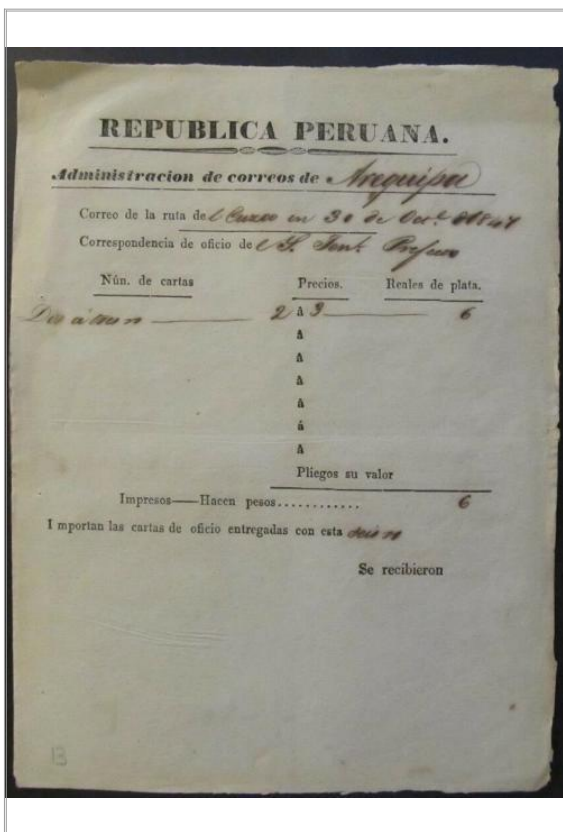 REPUBLICA PERUANA.
Administracion de correos de Arequipa
Correo de la ruta del Cuzco en 30 de Oct.e 1847
Correspondencia de oficio del S.
Nún. de cartas Precios. Reales de plata.
2 â 3 6
â
â
â
â
á
â
Pliegos su valor
Impresos——Hacen pesos............ 6
I mportan las cartas de oficio entregadas con esta seis
Se recibieron
B